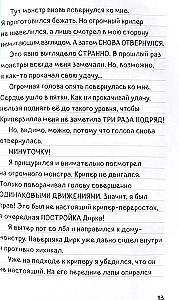 Тут монстр вновь повернулся ко мне.
Я приготовился бежать. Но огромный крипер
не шевелился, а лишь смотрел в мою сторону
немигающим взглядом. А затем СНОВА ОТВЕРНУЛСЯ.
Это явно выглядело СТРАННО. В прошлый раз
монстры всегда меня замечали. Но, возможно,
я как-то прокачал свою удачу...
Огромная голова опять повернулась ко мне.
Сердце ушло в пятки. Как ни прокачивай удачу,
нельзя поднять её до такого уровня, чтобы
Криперзилла меня не заметила ТРИ РАЗА ПОДРЯД!
Но, видимо, можно, потому что голова снова
отвернулась.
МИНУТОЧКУ!
Я прищурился и внимательно посмотрел
на огромного монстра. Крипер не двигался.
Только поворачивал голову совершенно
ОДИНАКОВЫМИ ДВИЖЕНИЯМИ. Значит, я был
прав! Это был не настоящий крипер-переросток,
а очередная ПОСТРОЙКА Дирка!
Я вытер пот со лба и направился к дому-
монстру. Наверняка Дирк уже давно сидел внутри
и противно хихикал.
Уже на подходе к криперу я убедился, что он
не настоящий. На его передние лапы опирался
13